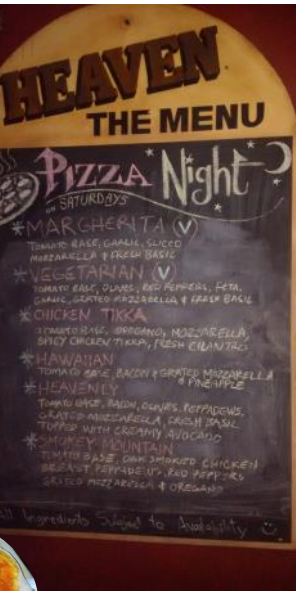 HEAVEN
THE MENU
PIZZA Night
ON SATURDAYS
*MARGHERITA (V)
TOMATO BASE, GARLIC, SLICED
MOZZARELLA & FRESH BASIL
*VEGETARIAN (V)
TOMATO BASE, OLIVES, RED PEPPERS, FETA,
GARLIC, GRATED MOZZARELLA & FRESH BASIL
*CHICKEN TIKKA
TOMATO BASE, OREGANO, MOZZARELLA,
SPICY CHICKEN TIKKA, FRESH CILANTRO
*HAWAIIAN
TOMATO BASE, BACON & GRATED MOZZARELLA
& PINEAPPLE
*HEAVENLY
TOMATO BASE, BACON, OLIVES, PEPPADEWS,
GRATED MOZZARELLA, FRESH BASIL
TOPPED WITH CREAMY AVOCADO
*SMOKEY MOUNTAIN
TOMATO BASE, OAK SMOKED CHICKEN
BREAST PEPPADEWS, RED PEPPERS
GRATED MOZZARELLA & OREGANO
All Ingredients Subject to Availability